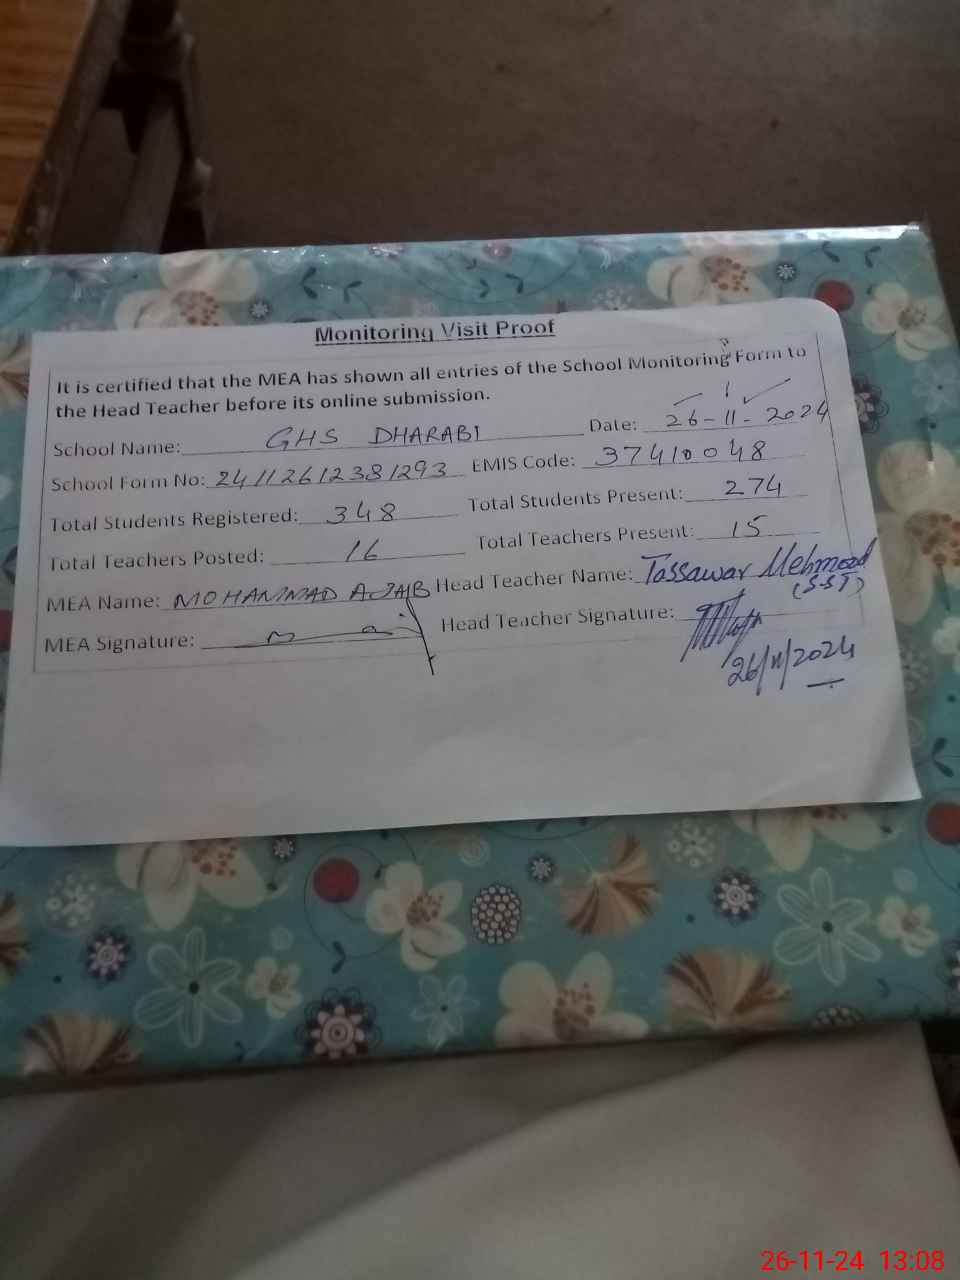 Monitoring Visit Proof
It is certified that the MEA has shown all entries of the School Monitoring Form to
the Head Teacher before its online submission.
School Name: GHS DHARABI Date: 26-11-2024
School Form No: 24112612381293 EMIS Code: 37410048
Total Students Registered: 348 Total Students Present: 274
Total Teachers Posted: 16 Total Teachers Present: 15
MEA Name: MOHAMMAD AJAIB Head Teacher Name: Tassawar Mehmood
(SST)
MEA Signature: Head Teacher Signature:
26/11/2024
26-11-24 13:08